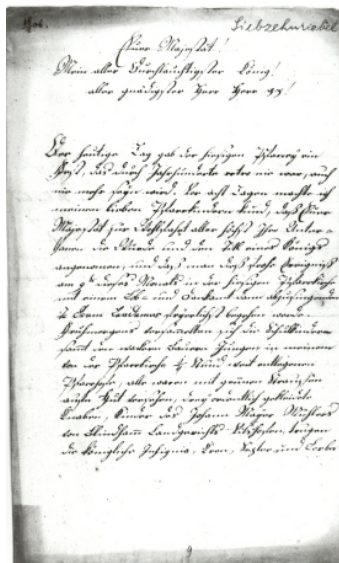 1806. Siebzehnrübel
Euer Majestät!
Mein aller Durchlauchtigster König!
aller gnädigster Herr Herr
Der heutige Tag gab der hiesigen Pfarrey ein
Fest, das durch Jahrhunderte nie war, auch
nie mehr seyn wird. Vor acht Tagen machte ich
meinen lieben Pfarrkindern kund, daß Euer
Majestät zur Wohlfahrt aller höchst Ihro Unter-
thanen die Würde und den Titl eines Königs
angenomen, und daß man dieß frohe Ereigniß
am dieses Monats in der hiesigen Pfarrkirche
mit einem Lob- und Dankamt dann abzusingenden
Te Deum Laudamus feyerlichst begehen werde.
Frühmorgens versammelten sich die Schulkinder
sammt den Jungen in meinem
von der Pfarrkirche ½ Stund weit entlegenen
Pfarrhofe, alle waren mit grünen Sträuschen
auf den Hut versehen, drey ordentlich gekleidte
Knaben, Kinder des Johann Mayer
von Landgerichts Vilshofen, trugen
die königliche Insignia, Kron, Zepter und
9